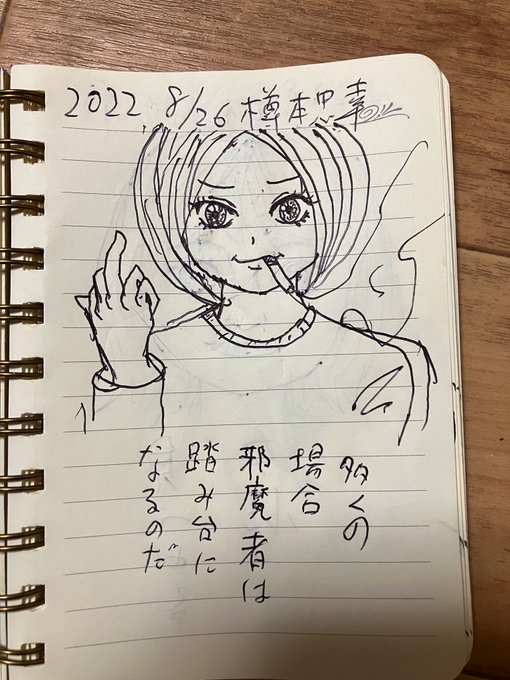 2022 8/26 樽本
多くの
場合
邪魔者は
踏み台に
なるのだ